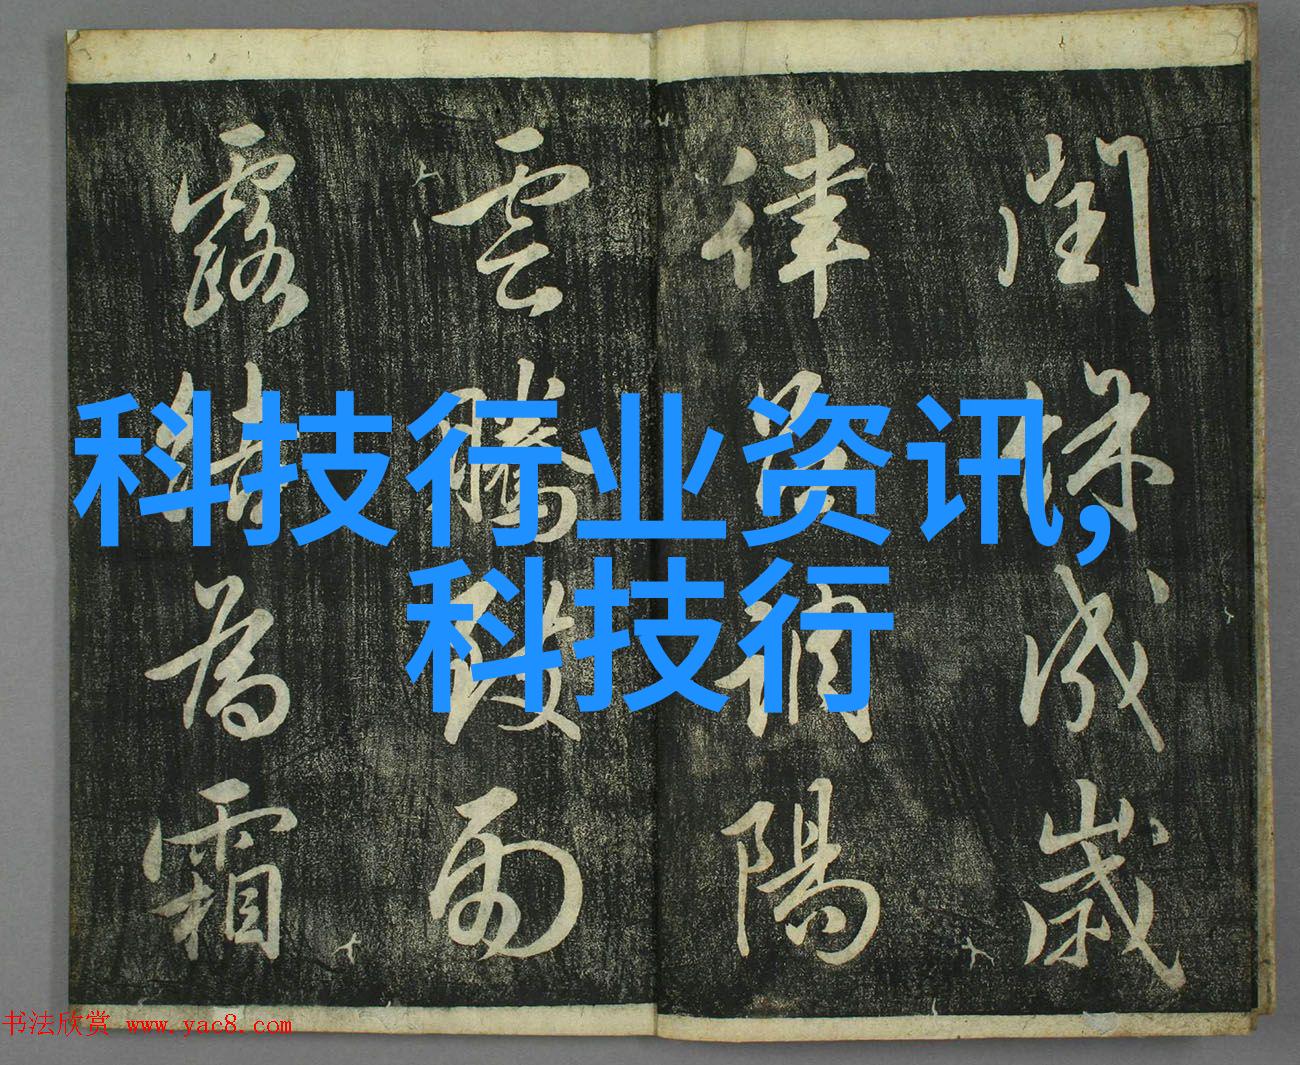 閏餘成歲
律呂調陽
雲騰致雨
露結為霜
科技行业资讯,
科技行
书法欣赏 www.yac8.com